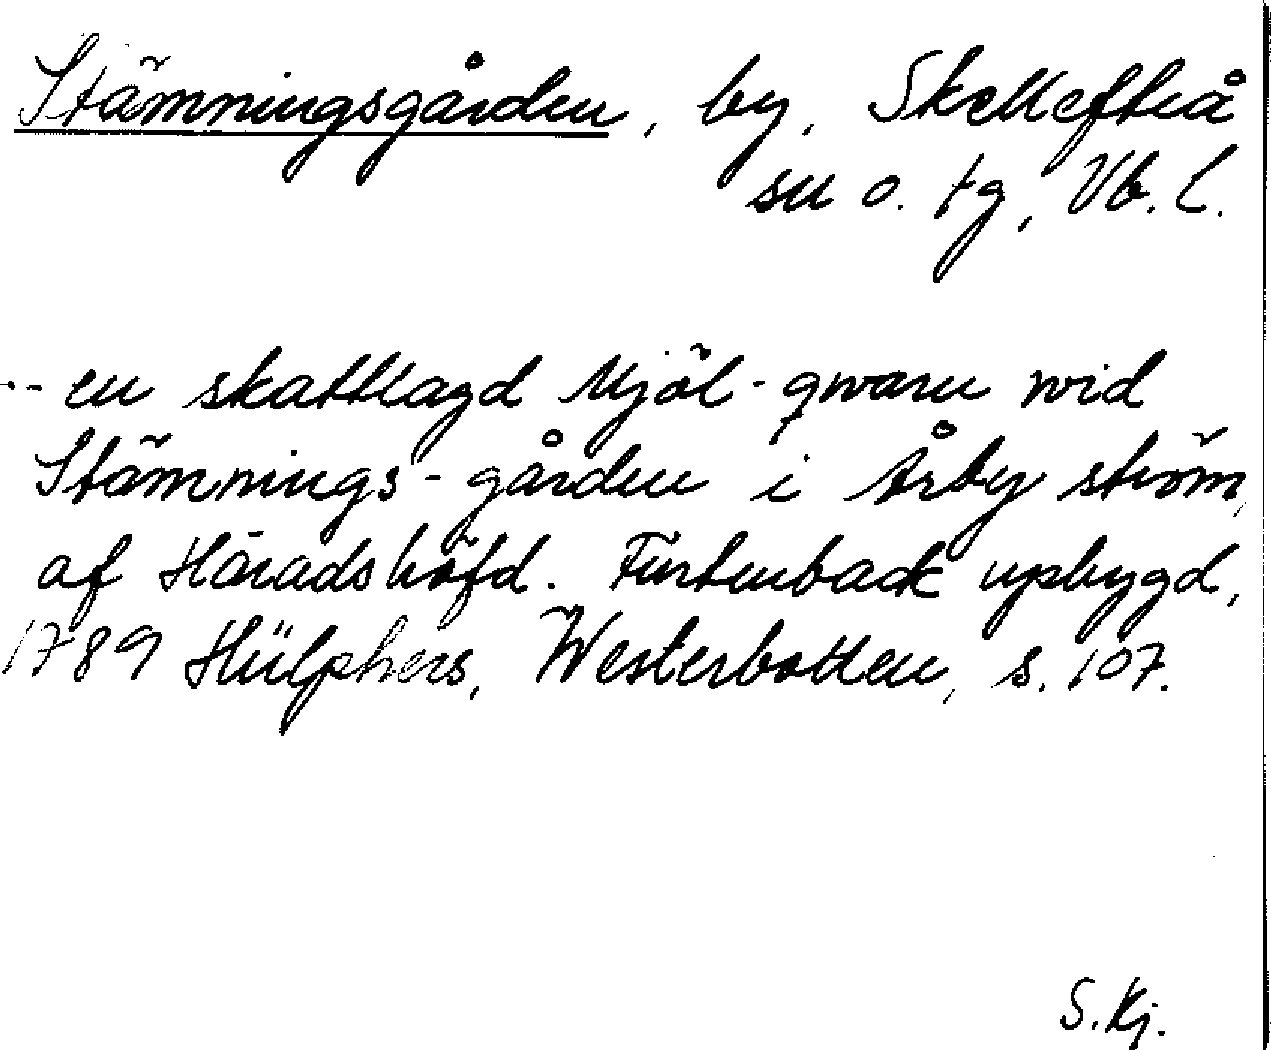 Stämningsgården, by, Skellefteå
sn o. tg, Vb. l.
-- en skattlagd Mjöl-qwarn wid
Stämnings-gården i Årby ström,
af Häradshöfd. Furtenback upbygd,
1789 Hülphers, Westerbotten, s. 107.
S. Kj.